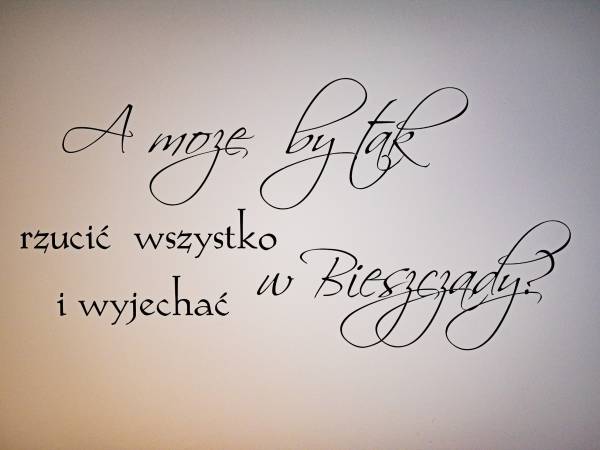 A moze by tak
rzucić wszystko
i wyjechać w Bieszczady?